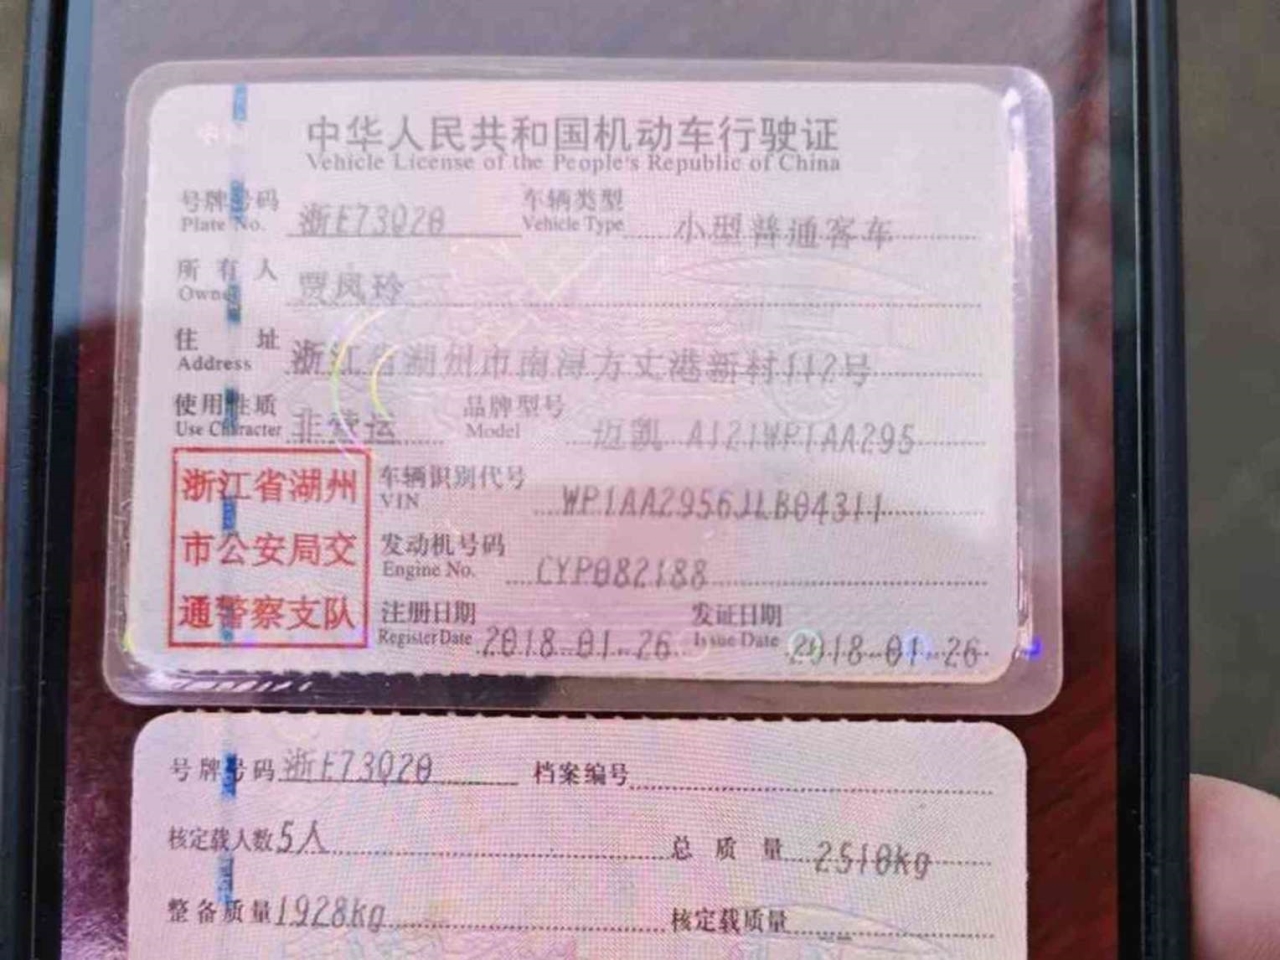 中华人民共和国机动车行驶证
Vehicle License of the People's Republic of China
号牌号码 浙E73Q20 车辆类型 小型普通客车
Plate No. Vehicle Type
所有人 贾凤玲
Owner
住址 浙江省湖州市南浔方丈港新村112号
Address
使用性质 非营运 品牌型号 迈凯 A121WP1AA295
Use Character Model
浙江省湖州
市公安局交
通警察支队
车辆识别代号 WP1AA2956JLB04311
VIN
发动机号码 CYP082188
Engine No.
注册日期 2018-01-26 发证日期 2018-01-26
Register Date Issue Date
号牌号码 浙E73Q20 档案编号
核定载人数 5人 总质量 2510kg
整备质量 1928kg 核定载质量 --